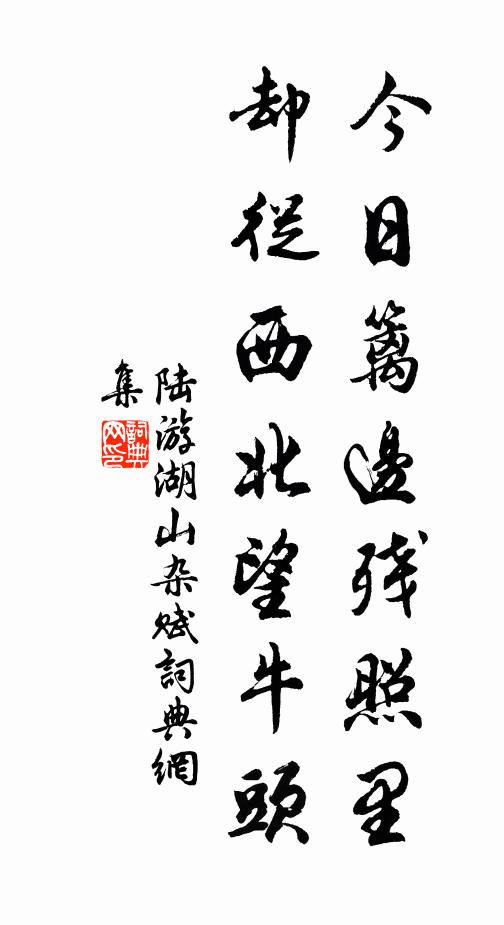 今日篱邊残照里
却從西北望牛頭
陆游湖山杂赋詞典網
集
詞典
网印